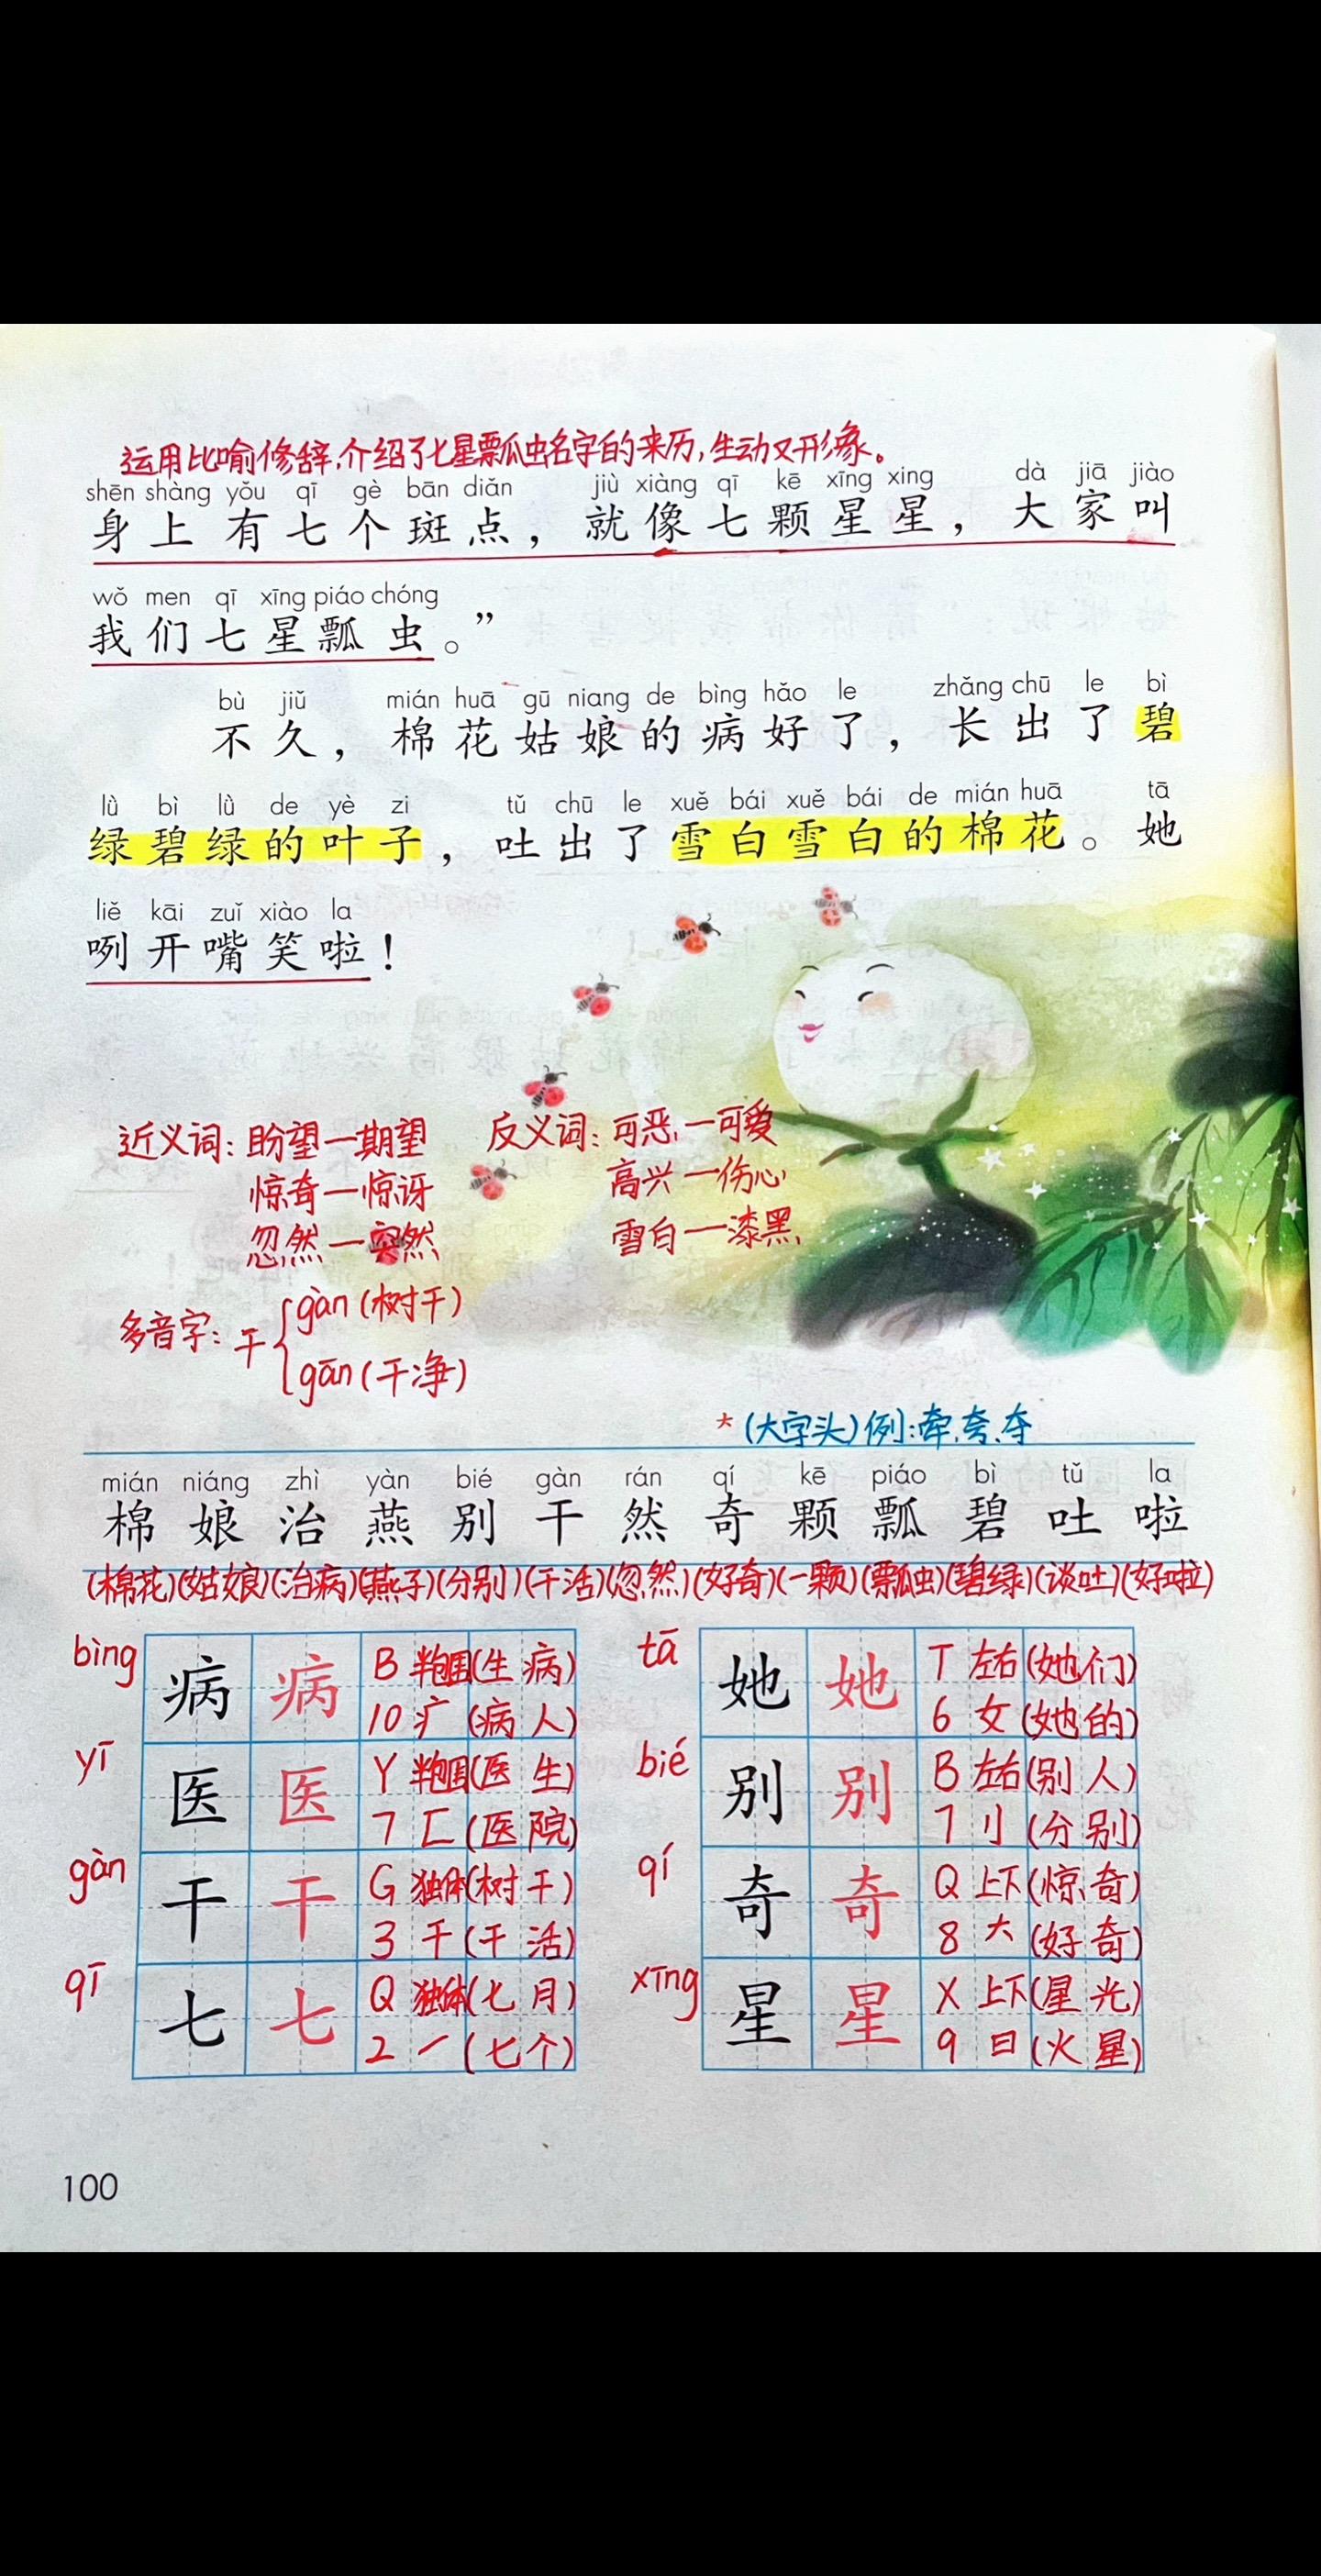 运用比喻修辞,介绍了七星瓢虫名字的来历,生动又形象。
shēn shàng yǒu qī gè bān diǎn jiù xiàng qī kē xīng xing dà jiā jiào
身上有七个斑点，就像七颗星星，大家叫
wǒ men qī xīng piáo chóng
我们七星瓢虫。”
bù jiǔ mián huā gū niang de bìng hǎo le zhǎng chū le bì
不久，棉花姑娘的病好了，长出了碧
lǜ bì lǜ de yè zi tǔ chū le xuě bái xuě bái de mián huā tā
绿碧绿的叶子，吐出了雪白雪白的棉花。她
liě kāi zuǐ xiào la
咧开嘴笑啦！
近义词:盼望—期望 反义词:可恶—可爱
惊奇—惊讶 高兴—伤心
忽然—突然 雪白—漆黑
多音字:干 gàn(树干)
gān(干净)
*(大字头)例:牵.夸.夺
mián niáng zhì yàn bié gàn rán qí kē piáo bì tǔ la
棉 娘 治 燕 别 干 然 奇 颗 瓢 碧 吐 啦
(棉花)(姑娘)(治病)(燕子)(分别)(干活)(忽然)(好奇)(一颗)(瓢虫)(碧绿)(谈吐)(好啦)
bìng 病 病 B 半包围(生病) tā 她 她 T 左右(她们)
10 疒 (病人) 6 女 (她的)
yī 医 医 Y 半包围(医生) bié 别 别 B 左右(别人)
7 匚 (医院) 7 刂 (分别)
gàn 干 干 G 独体(树干) qí 奇 奇 Q 上下(惊奇)
3 干 (干活) 8 大 (好奇)
qī 七 七 Q 独体(七月) xīng 星 星 X 上下(星光)
2 一 (七个) 9 日 (火星)
100